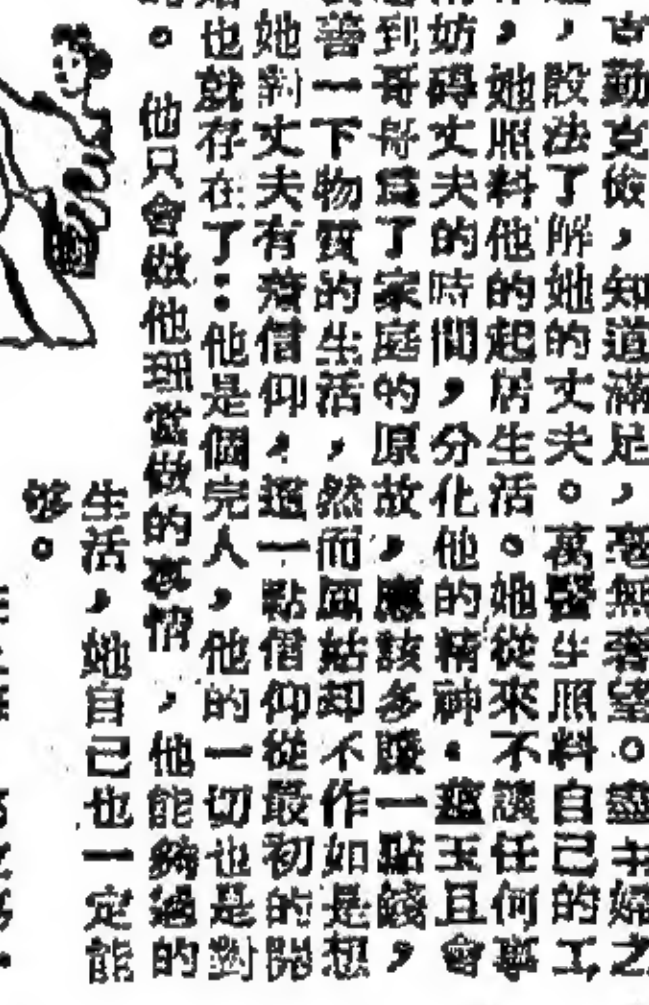 古勤克儉，知道滿足，毫無奢望。盡主婦之
，設法了解她的丈夫。萬醫生照料自己的工
，她照料他的起居生活。她從來不讓任何事
妨碍丈夫的時間，分化他的精神。蘊玉且會
到哥哥爲了家庭的原故，應該多賺一點錢，
善一下物質的生活，然而鳳姑却不作如是想
她對丈夫有着信仰，這一點信仰從最初的開
也就存在了：他是個完人，他的一切也是對
。他只會做他理當做的事情，他能夠過的
生活，她自己也一定能
够。